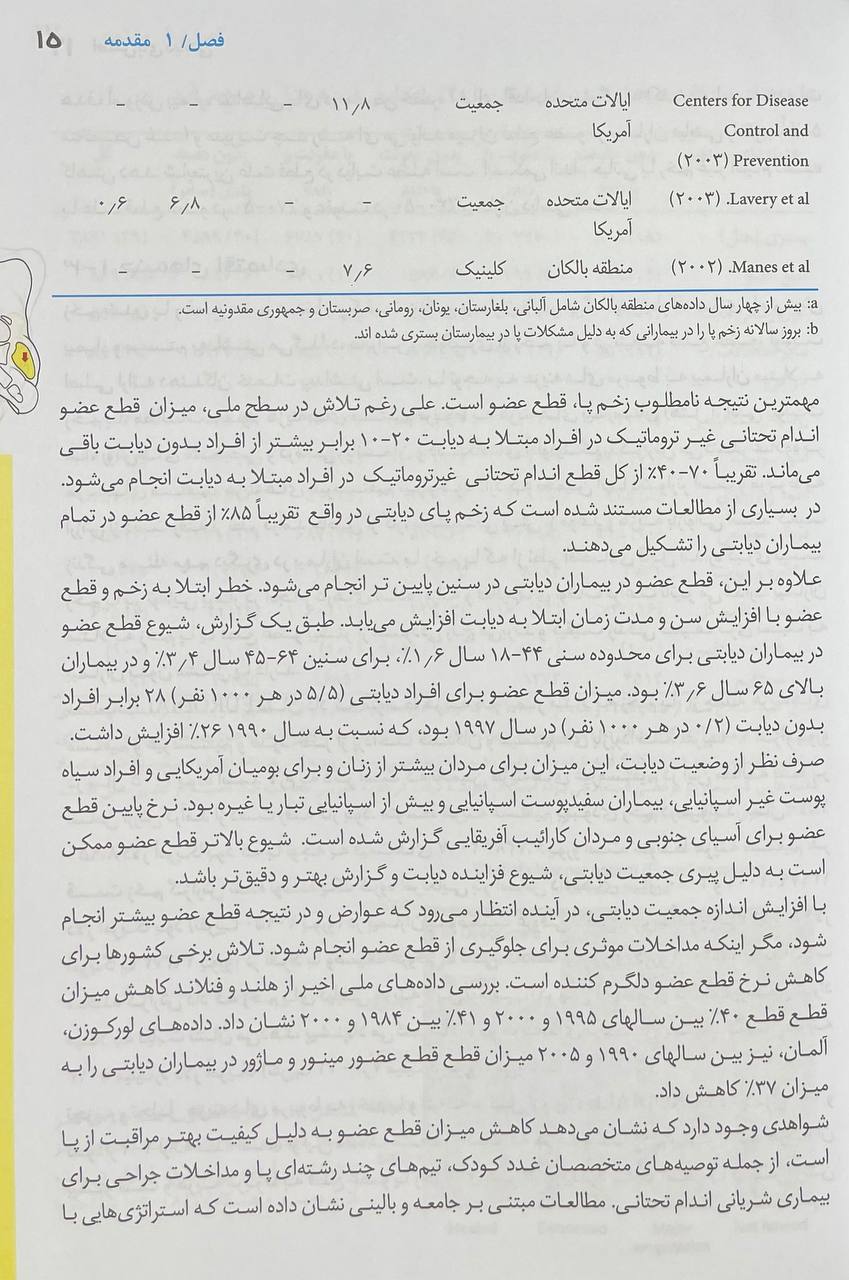 فصل/ ۱ مقدمه ۱۵
Centers for Disease ایالات متحده جمعیت ۱۱٫۸ – – –
Control and آمریکا
Prevention (۲۰۰۳)
Lavery et al. (۲۰۰۳) ایالات متحده جمعیت – – ۶٫۸ ۰٫۶
آمریکا
Manes et al. (۲۰۰۲) منطقه بالکان کلینیک ۷٫۶ – – –
a: بیش از چهار سال داده‌های منطقه بالکان شامل آلبانی، بلغارستان، یونان، رومانی، صربستان و جمهوری مقدونیه است.
b: بروز سالانه زخم پا را در بیمارانی که به دلیل مشکلات پا در بیمارستان بستری شده اند.
مهمترین نتیجه نامطلوب زخم پا، قطع عضو است. علی رغم تلاش در سطح ملی، میزان قطع عضو
اندام تحتانی غیر تروماتیک در افراد مبتلا به دیابت ۲۰–۱۰ برابر بیشتر از افراد بدون دیابت باقی
می‌ماند. تقریباً ۷۰–۴۰٪ از کل قطع اندام تحتانی غیرتروماتیک در افراد مبتلا به دیابت انجام می‌شود.
در بسیاری از مطالعات مستند شده است که زخم پای دیابتی در واقع تقریباً ۸۵٪ از قطع عضو در تمام
بیماران دیابتی را تشکیل می‌دهند.
علاوه بر این، قطع عضو در بیماران دیابتی در سنین پایین تر انجام می‌شود. خطر ابتلا به زخم و قطع
عضو با افزایش سن و مدت زمان ابتلا به دیابت افزایش می‌یابد. طبق یک گزارش، شیوع قطع عضو
در بیماران دیابتی برای محدوده سنی ۴۴–۱۸ سال ۱٫۶٪، برای سنین ۶۴–۴۵ سال ۳٫۴٪ و در بیماران
بالای ۶۵ سال ۳٫۶٪ بود. میزان قطع عضو برای افراد دیابتی (۵/۵ در هر ۱۰۰۰ نفر) ۲۸ برابر افراد
بدون دیابت (۰/۲ در هر ۱۰۰۰ نفر) در سال ۱۹۹۷ بود، که نسبت به سال ۱۹۹۰ ۲۶٪ افزایش داشت.
صرف نظر از وضعیت دیابت، این میزان برای مردان بیشتر از زنان و برای بومیان آمریکایی و افراد سیاه
پوست غیر اسپانیایی، بیماران سفیدپوست اسپانیایی و بیش از اسپانیایی تبار یا غیره بود. نرخ پایین قطع
عضو برای آسیای جنوبی و مردان کارائیب آفریقایی گزارش شده است. شیوع بالاتر قطع عضو ممکن
است به دلیل پیری جمعیت دیابتی، شیوع فزاینده دیابت و گزارش بهتر و دقیق‌تر باشد.
با افزایش اندازه جمعیت دیابتی، در آینده انتظار می‌رود که عوارض و در نتیجه قطع عضو بیشتر انجام
شود، مگر اینکه مداخلات موثری برای جلوگیری از قطع عضو انجام شود. تلاش برخی کشورها برای
کاهش نرخ قطع عضو دلگرم کننده است. بررسی داده‌های ملی اخیر از هلند و فنلاند کاهش میزان
قطع قطع ۴۰٪ بین سالهای ۱۹۹۵ و ۲۰۰۰ و ۴۱٪ بین ۱۹۸۴ و ۲۰۰۰ نشان داد. داده‌های لورکوزن،
آلمان، نیز بین سالهای ۱۹۹۰ و ۲۰۰۵ میزان قطع قطع عضور مینور و ماژور در بیماران دیابتی را به
میزان ۳۷٪ کاهش داد.
شواهدی وجود دارد که نشان می‌دهد کاهش میزان قطع عضو به دلیل کیفیت بهتر مراقبت از پا
است، از جمله توصیه‌های متخصصان غدد کودک، تیم‌های چند رشته‌ای پا و مداخلات جراحی برای
بیماری شریانی اندام تحتانی. مطالعات مبتنی بر جامعه و بالینی نشان داده است که استراتژی‌هایی با